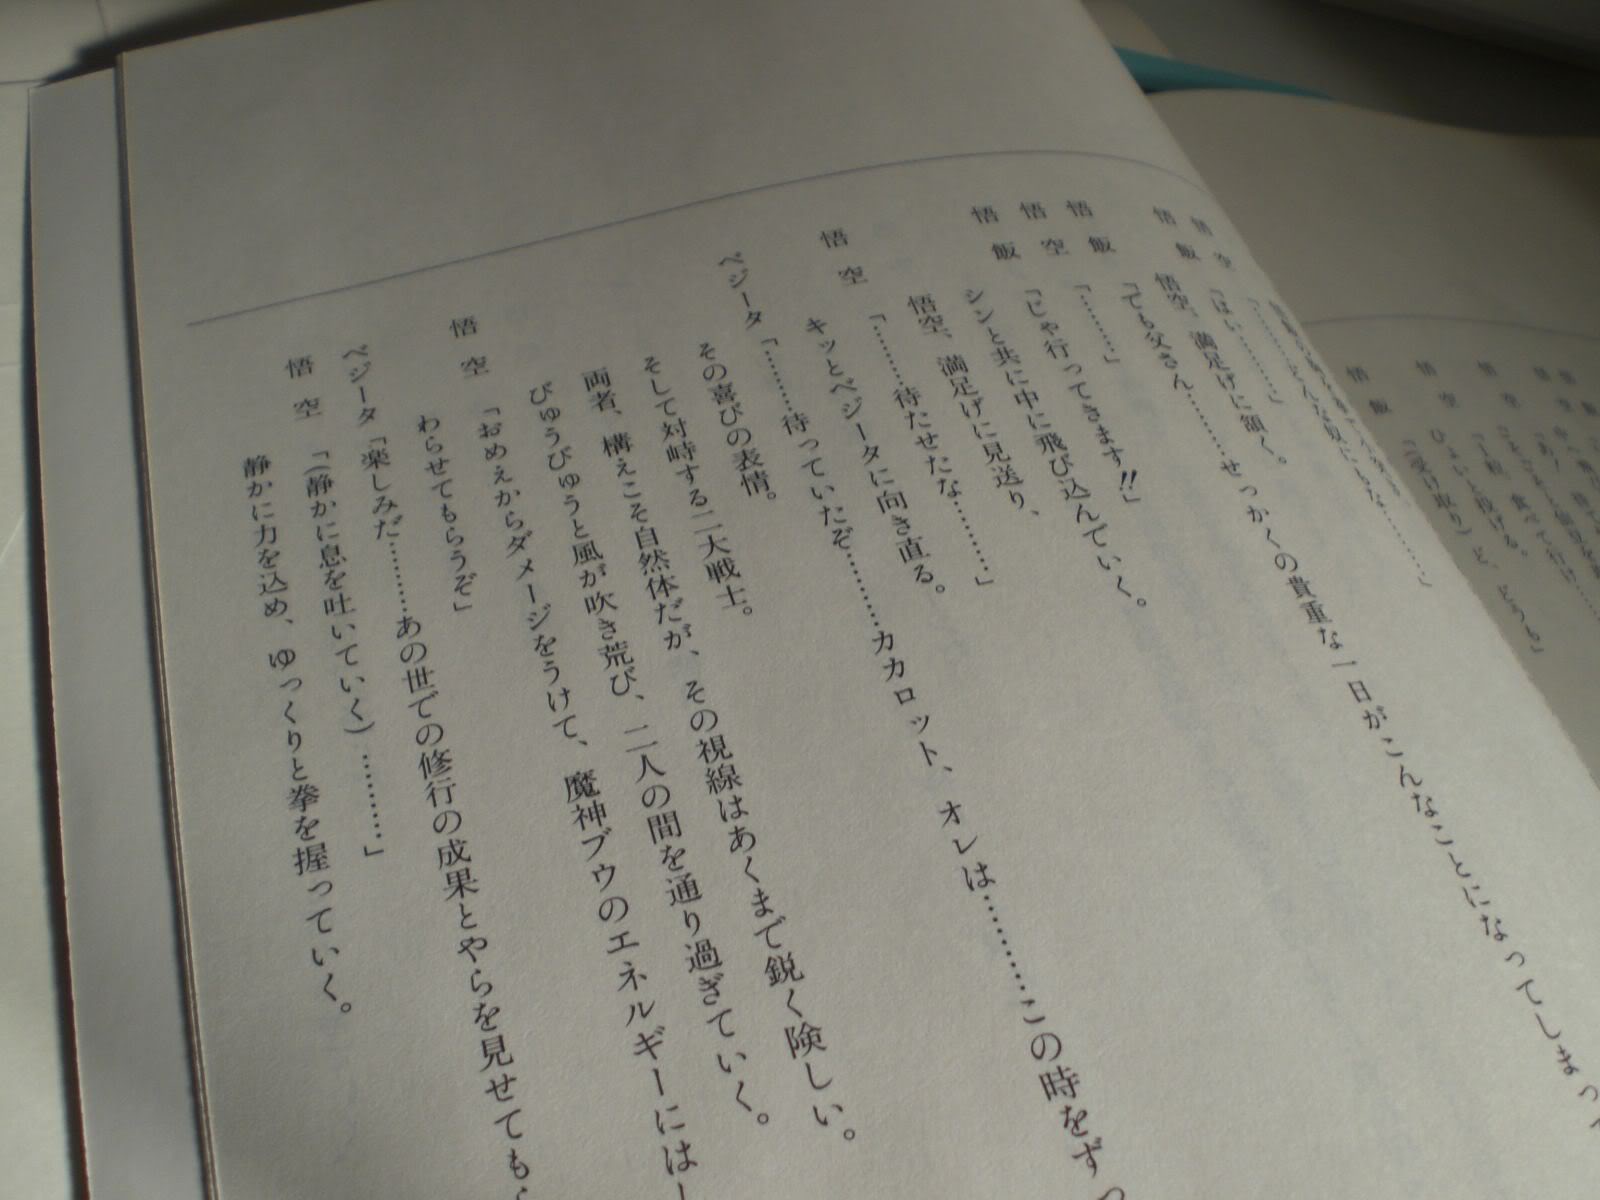 悟空「…………」
悟飯「はい…………」
悟空、満足げに頷く。
悟飯「でも父さん…………せっかくの貴重な一日がこんなことになってしまって
悟空「…………」
悟飯「じゃ行ってきます!!」
シンと共に中に飛び込んでいく。
悟空、満足げに見送り、
悟空「…………待たせたな…………」
キッとベジータに向き直る。
ベジータ「…………待っていたぞ…………カカロット、オレは…………この時をずっ
その喜びの表情。
そして対峙する二大戦士。
両者、構えこそ自然体だが、その視線はあくまで鋭く険しい。
びゅうびゅうと風が吹き荒び、二人の間を通り過ぎていく。
悟空「おめえからダメージをうけて、魔神ブウのエネルギーにはー
わらせてもらうぞ」
ベジータ「楽しみだ…………あの世での修行の成果とやらを見せても
悟空「(静かに息を吐いていく)…………」
静かに力を込め、ゆっくりと拳を握っていく。
悟空
ひょいと投げる。
悟飯「(受け取り)ど、どうも」